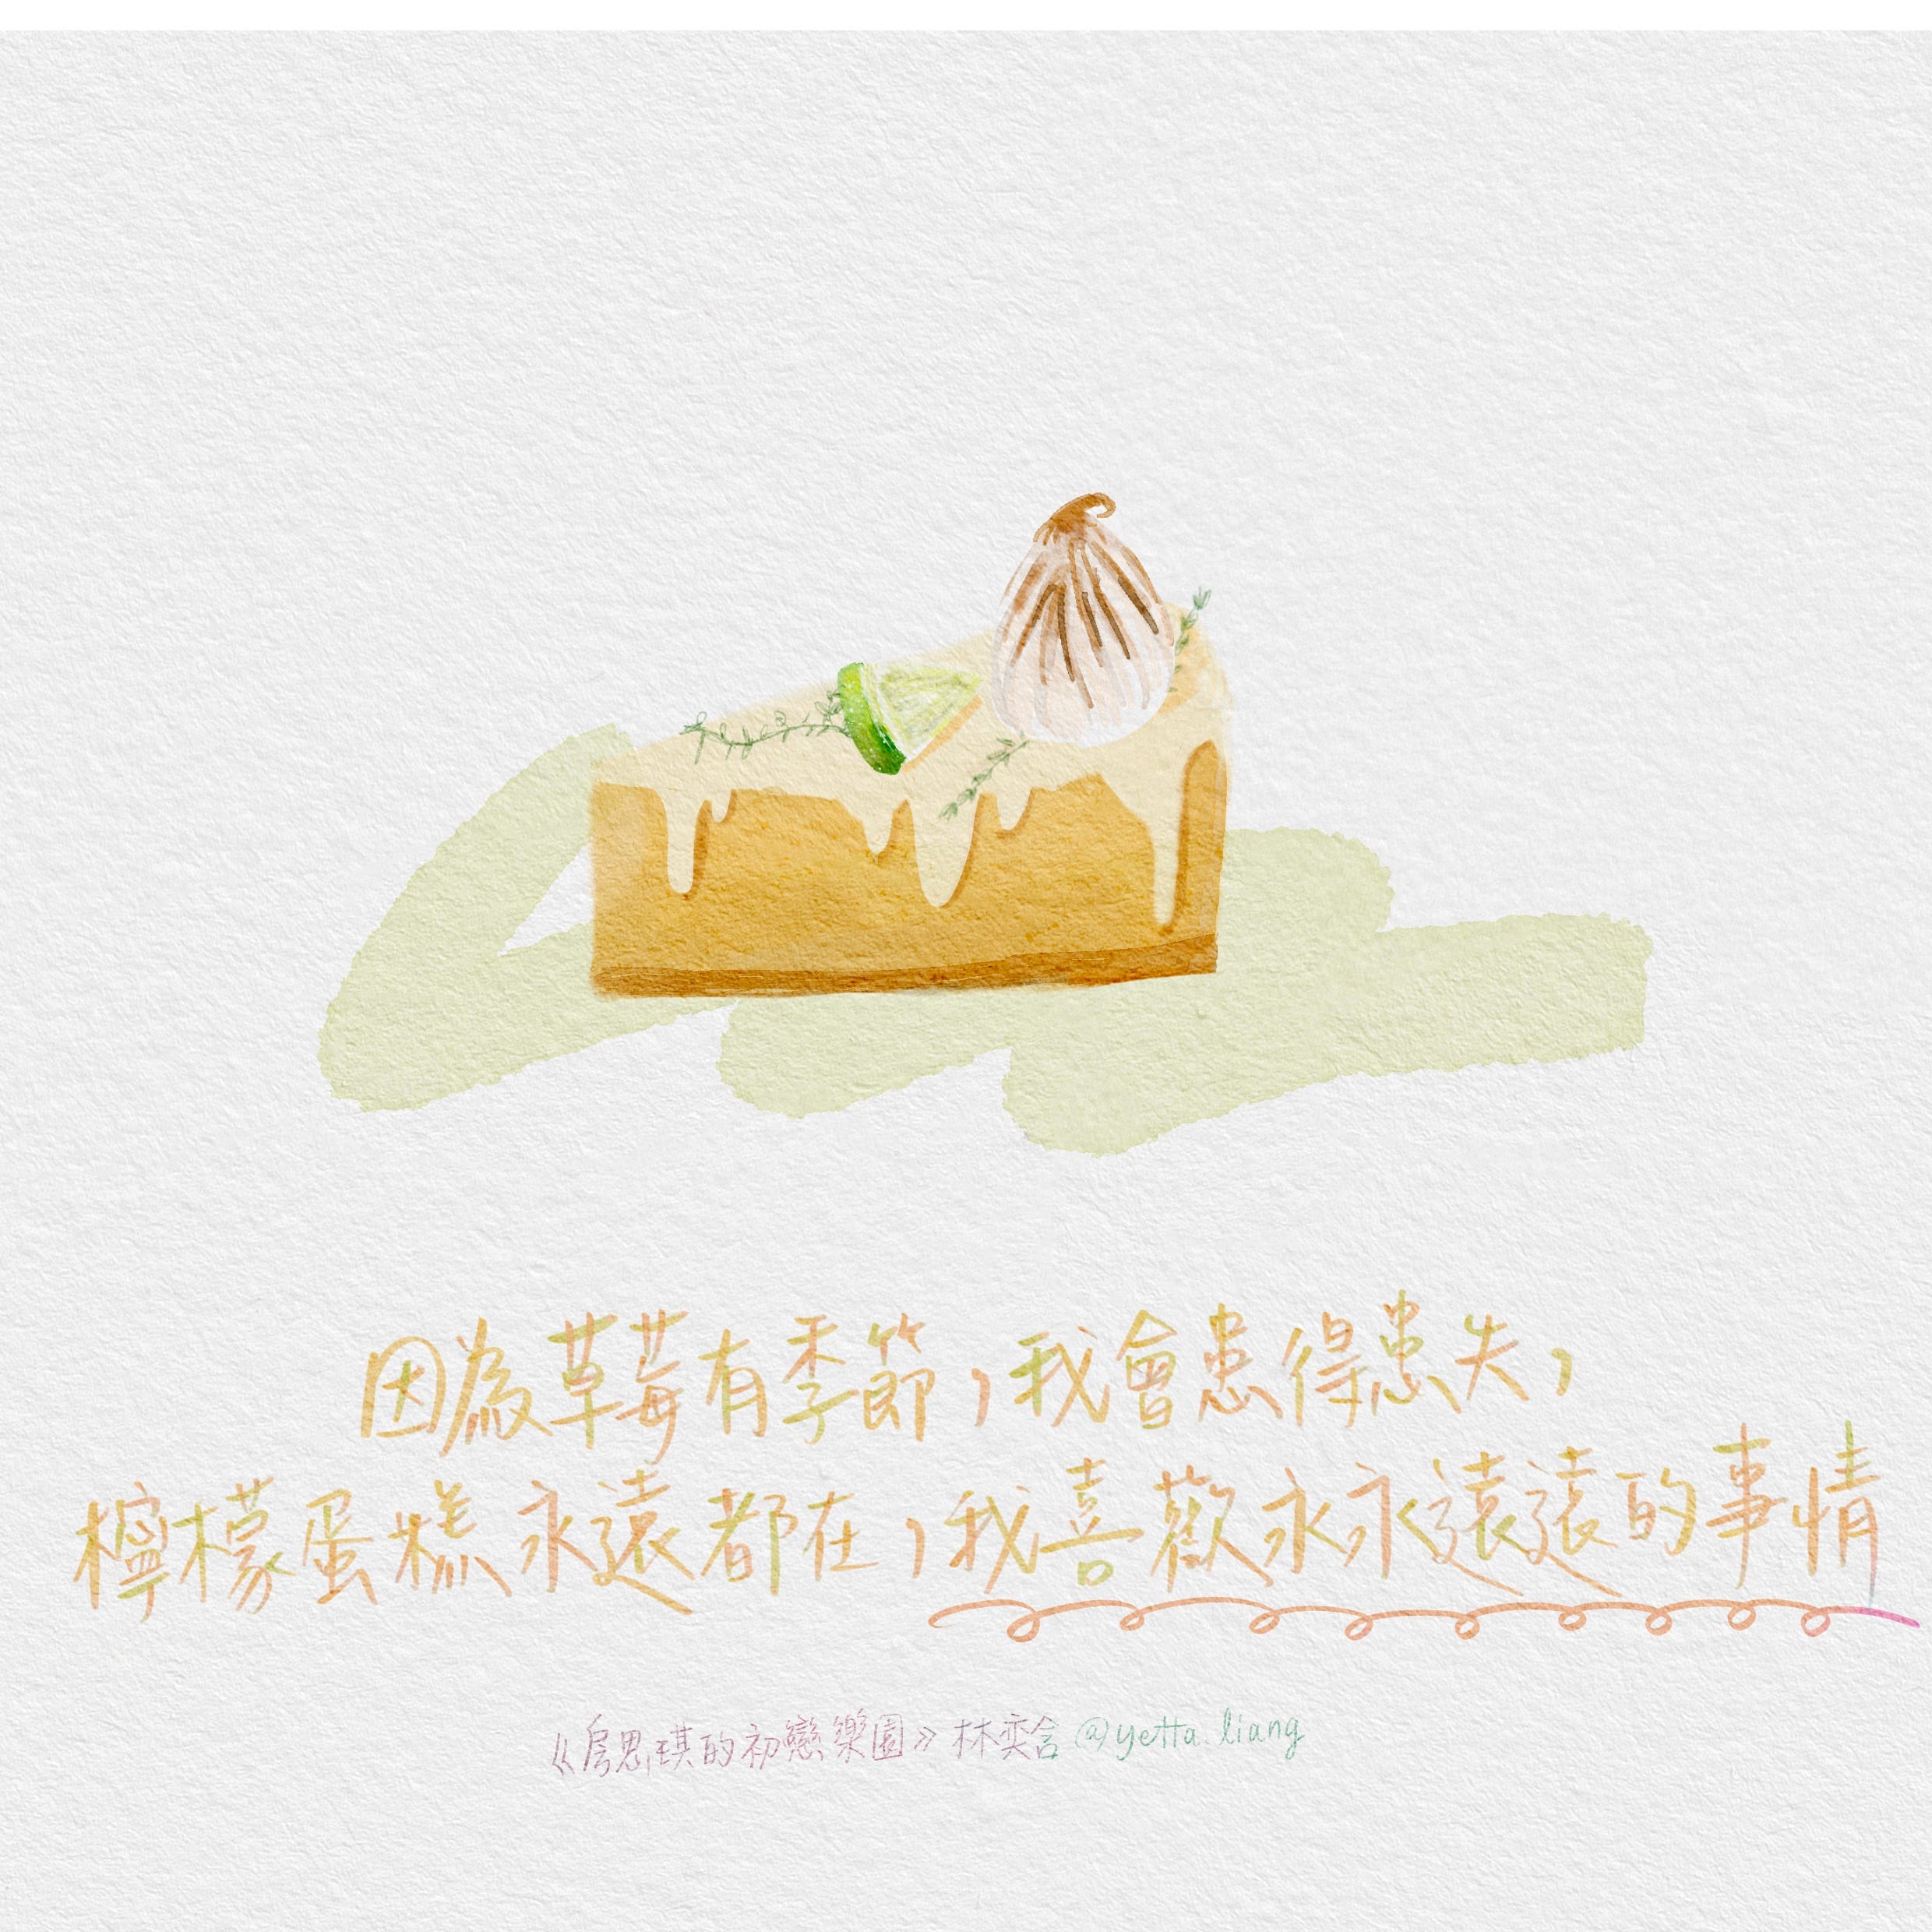 因為草莓有季節，我會患得患失，
檸檬蛋糕永遠都在，我喜歡永永遠遠的事情
《房思琪的初戀樂園》林奕含 @yetta.liang